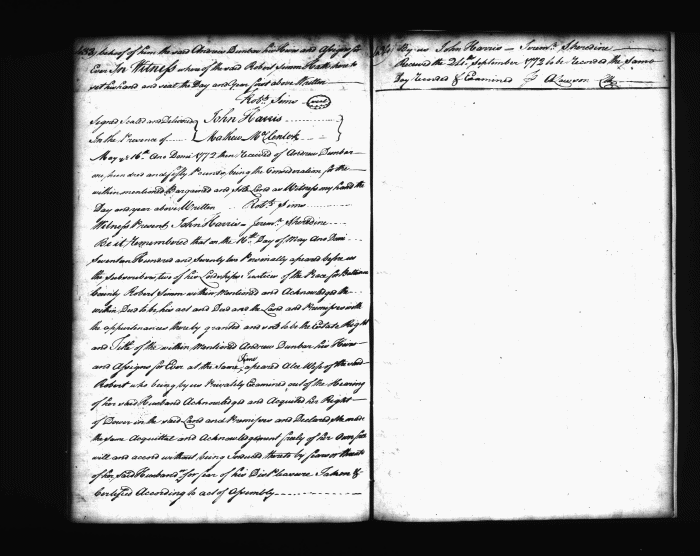 behoof of him the said Andrew Dunbar his Heirs and Assigns for
Ever In Witness whereof the said Robert Simm Hath hereto
set his hand and seal the Day and Year first above Written
Robt. Sims Seal
Signed Sealed and Delivered John Harris
In the Presence of Mathew
May ye 16th. Ano Domi 1772 then received of Andrew Dunbar
one hundred and fifty Pounds, being the Consideration for the
within mentioned Bargained and Sold Land as Witness my hand the
Day and year above Written Robt. Sims
Witness Present, John Harris - Jerem. Sheredine
Be it Remembered that on the 16th. Day of May Ano Domi
Seventen Hundred and Seventy two Personally apeared before us
the Subscribers, two of his Lordships Justices of the Peace for Baltimore
County Robert Simm within Mentioned and Acknowledged the
within Deed to be his act and Deed and the Land and Premisses with
he appurtenances thereby granted and sold to be the Estate Right
and Title of the within Mentioned Andrew Dunbar his Heirs
and Assigns for Ever at the Same Time apeared Wife of the said
Robert who being by us Privately Examined out of the Hearing
of her said Husband Acknowledged and Acquited her Right
of Dower in the said Land and Premisses and Declared she made
the same Acquittal and Acknowledgement freely of her own free
will and accord without being Induced thereto by fears or threats
of her said Husband or for fear of his Displeasure Taken &
Certified According to act of Assembly
By us John Harris - Jerem. Sheredine
Received the 24th. September 1772 to be recorded the same
Day recorded & Examined A Lawson